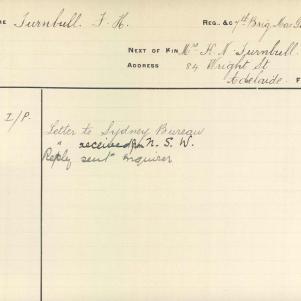 ME Turnbull. F. H. REG. &c 7th Brig. Mac. G
NEXT OF KIN Mrs H. N. Turnbull.
ADDRESS 84 Wright St
Adelaide F
I/P. Letter to Sydney Bureau
" received fm N. S. W.
Reply sent inquirer